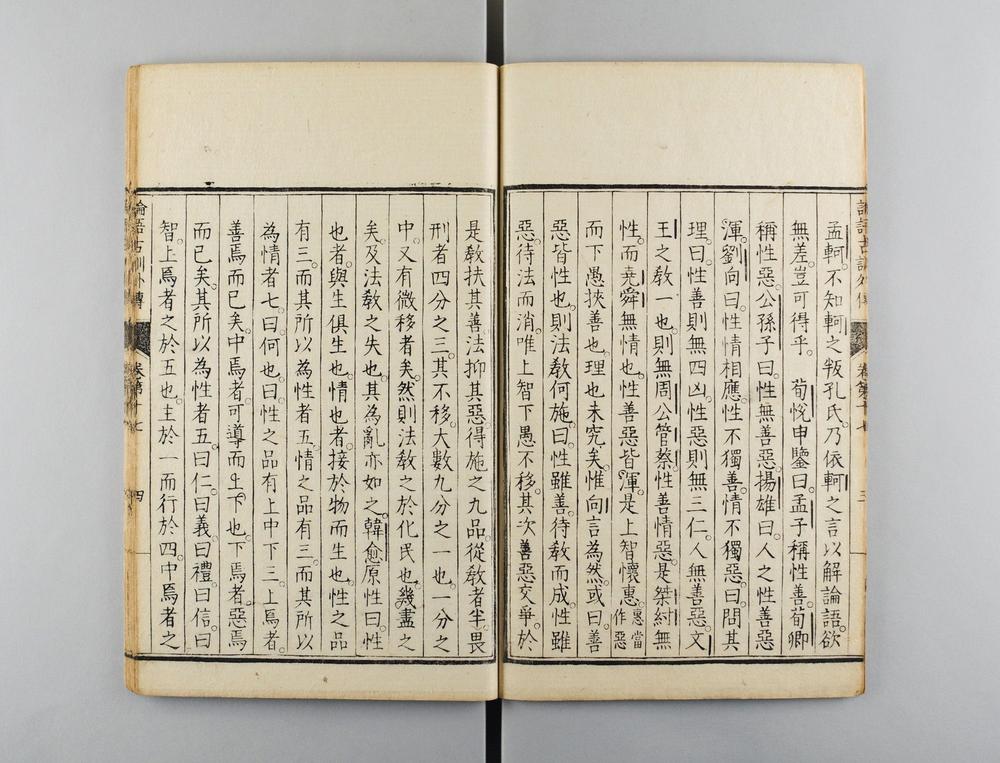 論語古訓外傳 卷第十七 三
孟軻。不知軻之叛孔氏。乃依軻之言以解論語。欲
無差。豈可得乎。 荀悅申鑒曰。孟子稱性善。荀卿
稱性惡。公孫子曰。性無善惡。揚雄曰。人之性善惡
渾。劉向曰。性情相應。性不獨善。情不獨惡。曰問其
理。曰性善則無四凶。性惡則無三仁。人無善惡。文
王之教一也。則無周公管蔡。性善情惡。是桀紂無
性。而堯舜無情也。性善惡皆渾。是上智懷惠惠當作惡
而下愚挾善也。理也未究矣。惟向言為然。或曰善
惡皆性也。則法教何施。曰性雖善待教而成。性雖
惡。待法而消。唯上智下愚不移。其次善惡交爭。於
是教扶其善。法抑其惡。得施之九品。從教者半。畏
刑者四分之三。其不移大數九分之一也。一分之
中。又有微移者矣。然則法教之於化民也。幾盡之
矣。及法教之失也。其為亂亦如之。韓愈原性曰。性
也者。與生俱生也。情也者。接於物而生也。性之品
有三。而其所以為性者五。情之品有三。而其所以
為情者七。曰何也。曰性之品有上中下三。上焉者。
善焉而已矣。中焉者。可導而上下也。下焉者。惡焉
而已矣。其所以為性者五。曰仁。曰義。曰禮。曰信。曰
智。上焉者之於五也。主於一而行於四。中焉者之
論語古訓外傳 卷第十七 四